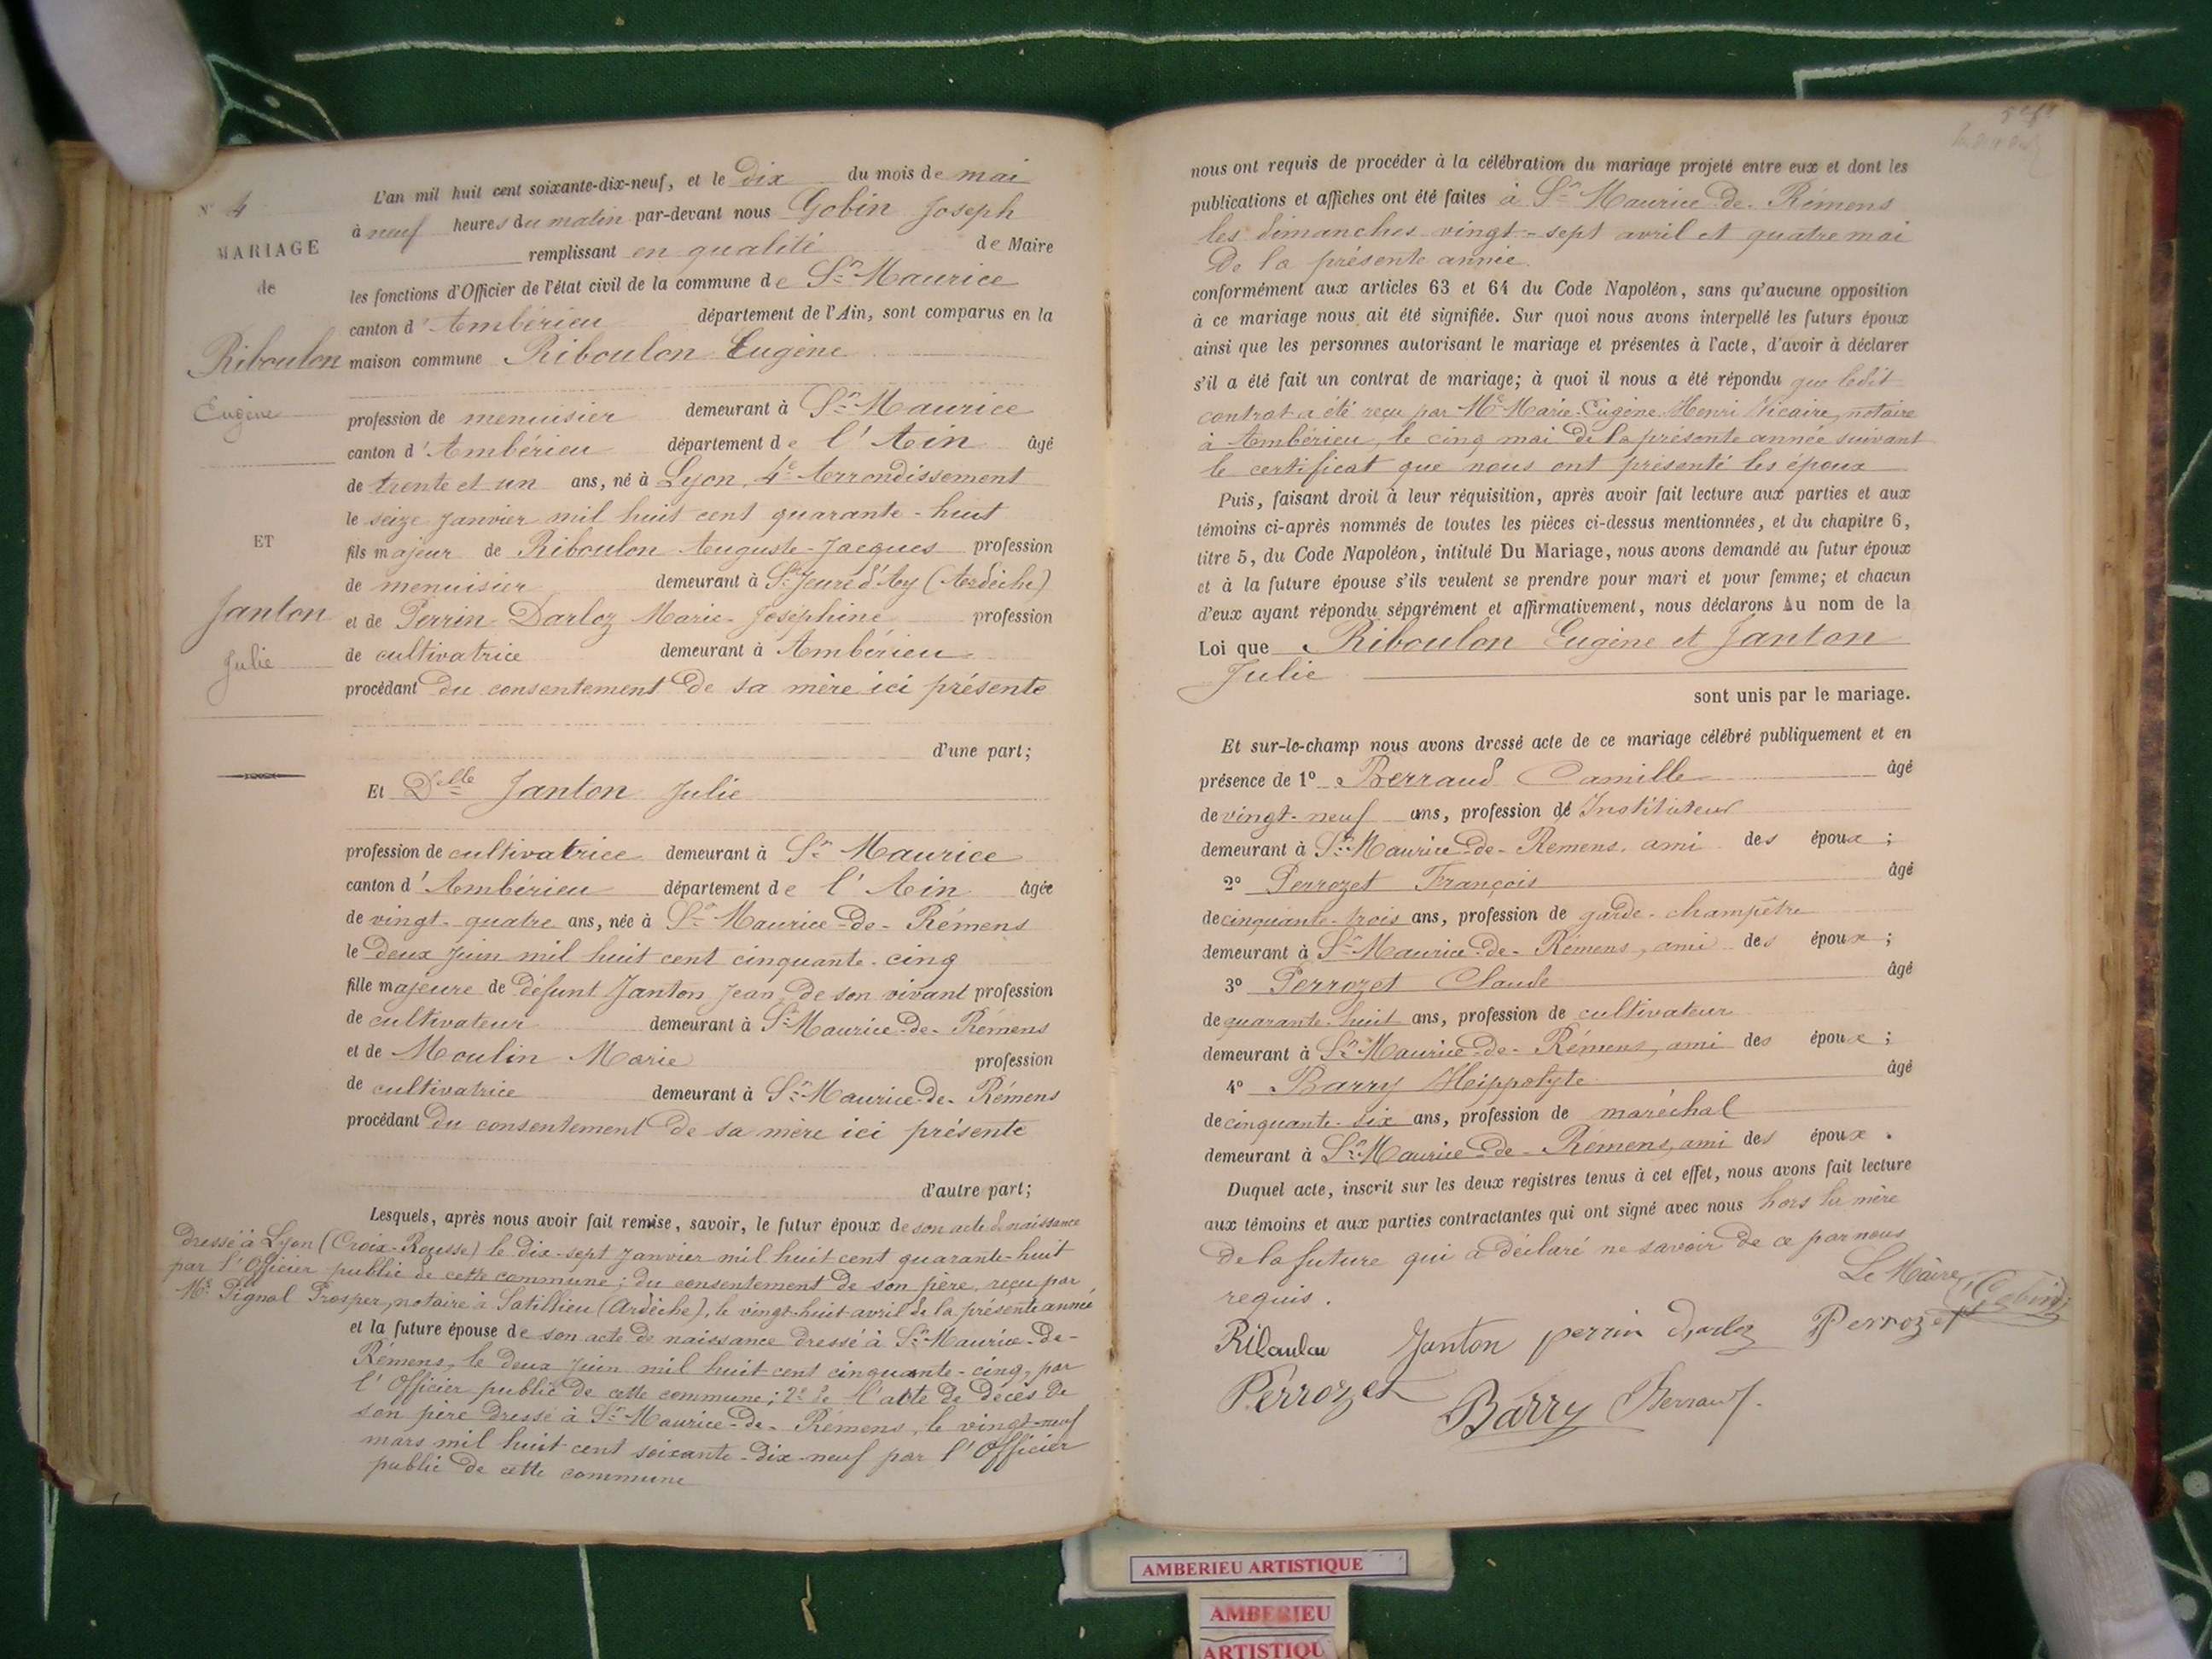 N° 4
MARIAGE
de
Riboulon
Eugène
ET
Janton
Julie
L'an mil huit cent soixante-dix-neuf, et le dix du mois de mai
à neuf heures du matin par-devant nous Gobin Joseph
remplissant en qualité de Maire
les fonctions d'Officier de l'état civil de la commune de St Maurice
canton d'Ambérieu département de l'Ain, sont comparus en la
maison commune Riboulon Eugène
profession de menuisier demeurant à St Maurice
canton d'Ambérieu département de l'Ain âgé
de trente et un ans, né à Lyon, 4e Arrondissement
le seize janvier mil huit cent quarante-huit
fils majeur de Riboulon Auguste-Jacques profession
de menuisier demeurant à St Jeure d'Ay (Ardèche)
et de Perrin-Darloz Marie-Joséphine profession
de cultivatrice demeurant à Ambérieu
procédant du consentement de sa mère ici présente
d'une part;
Et Delle Janton Julie
profession de cultivatrice demeurant à St Maurice
canton d'Ambérieu département de l'Ain âgée
de vingt-quatre ans, née à St Maurice-de-Rémens
le deux juin mil huit cent cinquante-cinq
fille majeure de défunt Janton Jean, de son vivant profession
de cultivateur demeurant à St Maurice-de-Rémens
et de Moulin Marie profession
de cultivatrice demeurant à St Maurice-de-Rémens
procédant du consentement de sa mère ici présente
d'autre part;
Lesquels, après nous avoir fait remise, savoir, le futur époux de son acte de naissance
dressé à Lyon (Croix-Rousse) le dix-sept janvier mil huit cent quarante-huit
par l'Officier public de cette commune; du consentement de son père, reçu par
Me Pignal Prosper, notaire à Satillieu (Ardèche), le vingt-huit avril de la présente année
et la future épouse de son acte de naissance dressé à St Maurice-de-
Rémens, le deux juin mil huit cent cinquante-cinq, par
l'Officier public de cette commune; 2° de l'acte de décès de
son père dressé à St Maurice-de-Rémens, le vingt-neuf
mars mil huit cent soixante-dix-neuf par l'Officier
public de cette commune
nous ont requis de procéder à la célébration du mariage projeté entre eux et dont les
publications et affiches ont été faites à St Maurice-de-Rémens
les dimanches vingt-sept avril et quatre mai
de la présente année
conformément aux articles 63 et 64 du Code Napoléon, sans qu'aucune opposition
à ce mariage nous ait été signifiée. Sur quoi nous avons interpellé les futurs époux
ainsi que les personnes autorisant le mariage et présentes à l'acte, d'avoir à déclarer
s'il a été fait un contrat de mariage; à quoi il nous a été répondu que ledit
contrat a été reçu par Me Marie-Eugène-Henri Vicaire, notaire
à Ambérieu, le cinq mai de la présente année suivant
le certificat que nous ont présenté les époux
Puis, faisant droit à leur réquisition, après avoir fait lecture aux parties et aux
témoins ci-après nommés de toutes les pièces ci-dessus mentionnées, et du chapitre 6,
titre 5, du Code Napoléon, intitulé Du Mariage, nous avons demandé au futur époux
et à la future épouse s'ils veulent se prendre pour mari et pour femme; et chacun
d'eux ayant répondu séparément et affirmativement, nous déclarons Au nom de la
Loi que Riboulon Eugène et Janton
Julie
sont unis par le mariage.
Et sur-le-champ nous avons dressé acte de ce mariage célébré publiquement et en
présence de 1° Berraud Camille âgé
de vingt-neuf ans, profession de Instituteur
demeurant à St Maurice-de-Rémens, ami des époux;
2° Perrozet François âgé
de cinquante-trois ans, profession de garde-champêtre
demeurant à St Maurice-de-Rémens, ami des époux;
3° Perrozet Claude âgé
de quarante-huit ans, profession de cultivateur
demeurant à St Maurice-de-Rémens, ami des époux;
4° Barry Hippolyte âgé
de cinquante-six ans, profession de maréchal
demeurant à St Maurice-de-Rémens, ami des époux.
Duquel acte, inscrit sur les deux registres tenus à cet effet, nous avons fait lecture
aux témoins et aux parties contractantes qui ont signé avec nous hors la mère
de la future qui a déclaré ne savoir de ce par nous
requis.
Le Maire, Gobin
Riboulon Janton perrin darloz Perrozet
Perrozet Barry Berraud
AMBERIEU ARTISTIQUE
AMBERIEU
ARTISTIQU